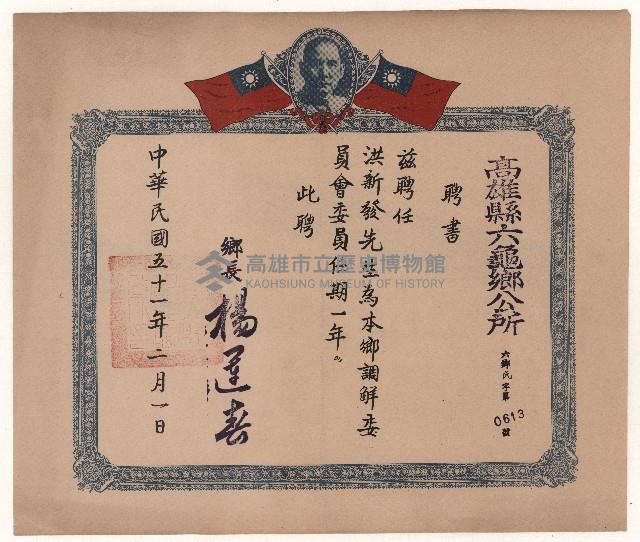 高雄縣六龜鄉公所
六鄉民字第
0613
號
聘書
茲聘任
洪新發先生為本鄉調解委
員會委員任期一年。
此聘
鄉長
楊運春
中華民國五十一年二月一日
高雄市立歷史博物館
KAOHSIUNG MUSEUM OF HISTORY